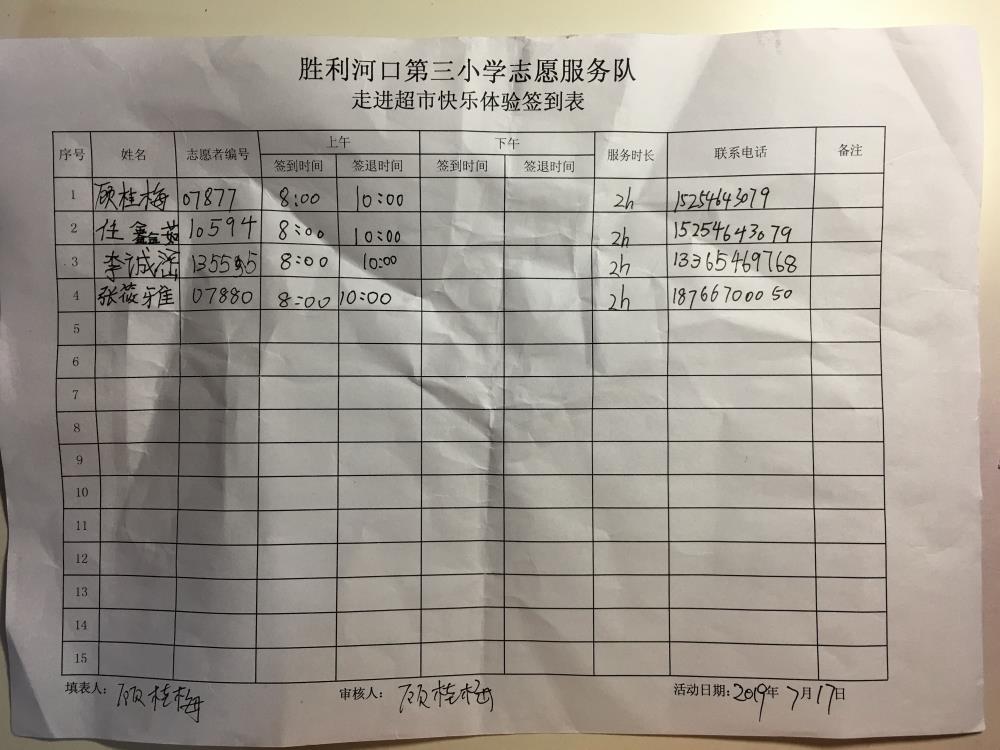 胜利河口第三小学志愿服务队
走进超市快乐体验签到表
序号 姓名 志愿者编号 上午 下午 服务时长 联系电话 备注
签到时间 签退时间 签到时间 签退时间
1 顾桂梅 07877 8:00 10:00 2h 15254643079
2 任鑫茹 10594 8:00 10:00 2h 15254643079
3 李诚滛 8:00 10:00 2h 13365469768
4 张筱雅 07880 8:00 10:00 2h 18766700050
5
6
7
8
9
10
11
12
13
14
15
填表人: 顾桂梅 审核人: 顾桂梅 活动日期: 2019年 7月17日